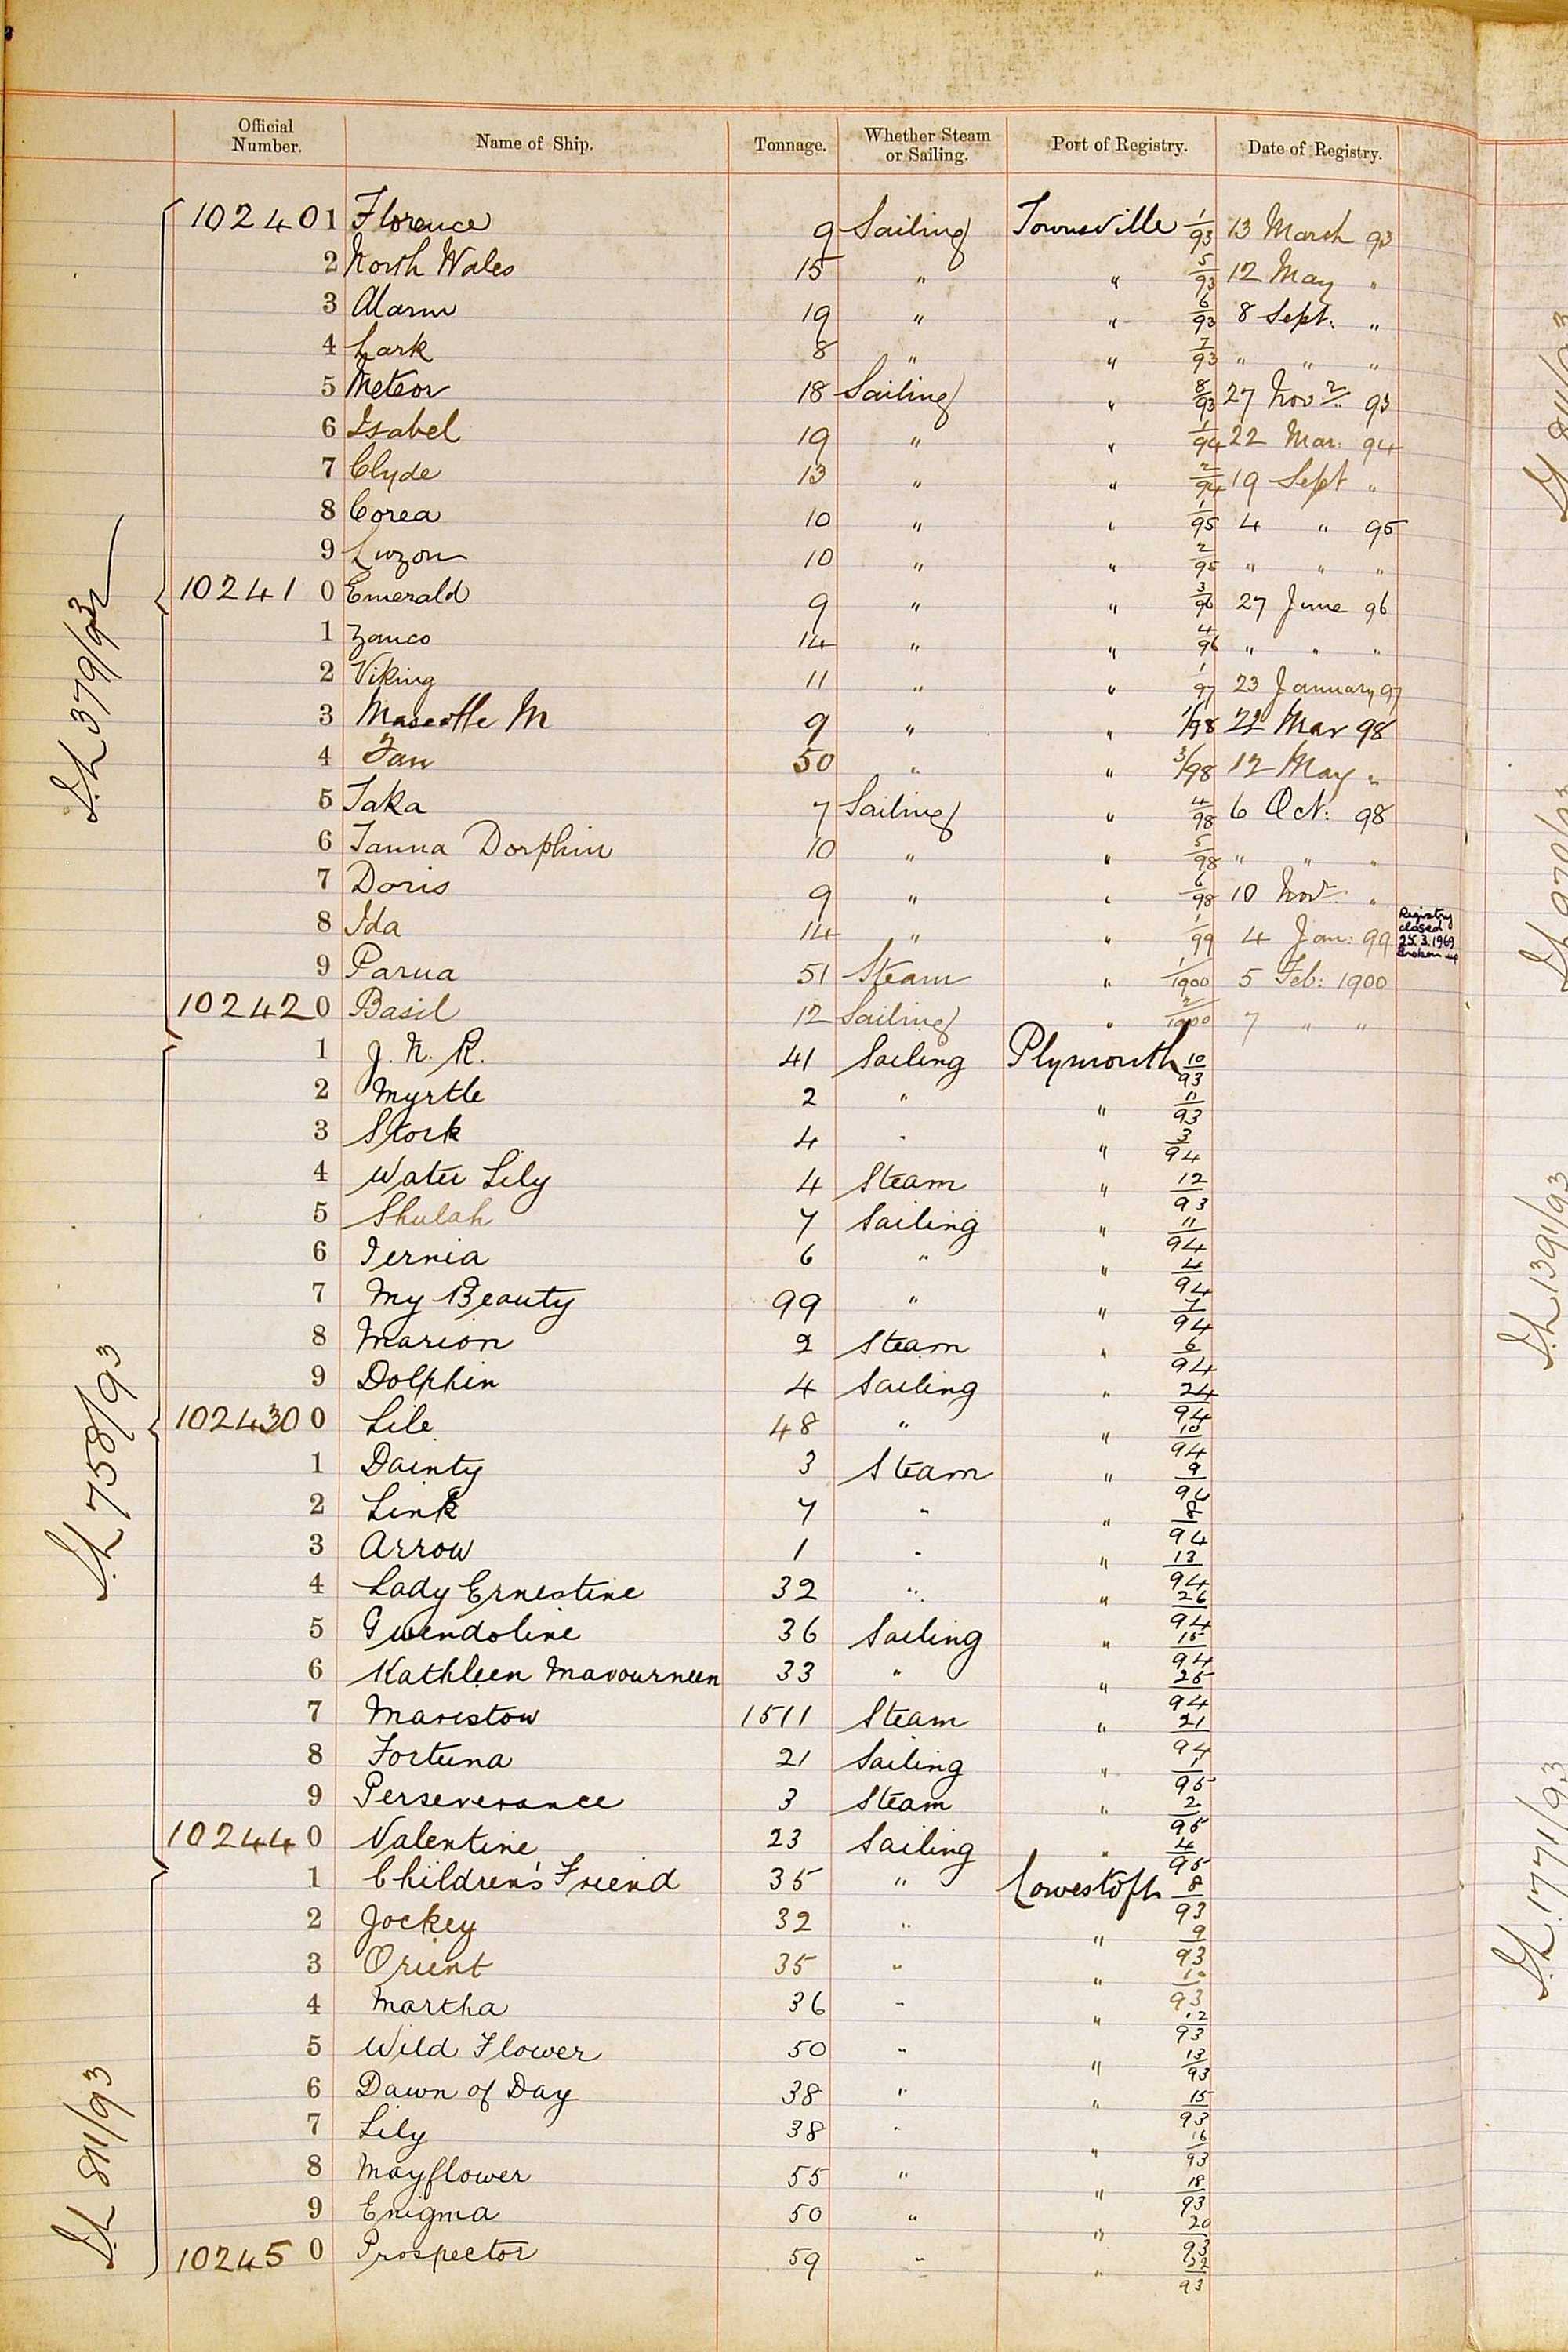 Official Number. Name of Ship. Tonnage. Whether Steam or Sailing. Port of Registry. Date of Registry.
102401 Florence 9 Sailing Townsville 1/93 13 March 93
2 North Wales 15 " " 5/93 12 May "
3 Alarm 19 " " 6/93 8 Sept: "
4 Lark 8 " " 7/93 " " "
5 Meteor 18 Sailing " 8/93 27 Novr 93
6 Isabel 19 " " 1/94 22 Mar: 94
7 Clyde 13 " " 2/94 19 Sept "
8 Corea 10 " " 1/95 4 " 95
9 Luzon 10 " " 2/95 " " "
102410 Emerald 9 " " 3/96 27 June 96
1 Zanco 14 " " 4/96 " " "
2 Viking 11 " " 1/97 23 January 97
3 Mascotte M 9 " " 1/98 Mar 98
4 50 " " 3/98 12 May "
5 Taka 7 Sailing " 4/98 6 Oct: 98
6 Tanna Dorphin 10 " " 5/98 " " "
7 Doris 9 " " 6/98 10 Novr "
8 Ida 14 " " 1/99 4 Jan: 99 Registry closed 25.3.1969 Broken up
9 Parua 51 Steam " 1/1900 5 Feb: 1900
102420 Basil 12 Sailing " 2/1900 7 " "
1 J. N. R. 41 Sailing Plymouth 10/93
2 Myrtle 2 " " 11/93
3 Stork 4 " " 3/94
4 Water Lily 4 Steam " 12/93
5 Shulah 7 Sailing " 11/94
6 Iernia 6 " " 4/94
7 My Beauty 99 " " 7/94
8 Marion 2 Steam " 6/94
9 Dolphin 4 Sailing " 24/94
1024300 Lile 48 " " 10/94
1 Dainty 3 Steam " 9/94
2 Link 7 " " 8/94
3 Arrow 1 " " 13/94
4 Lady Ernestine 32 " " 26/94
5 Gwendoline 36 Sailing " 15/94
6 Kathleen Mavourneen 33 " " 25/94
7 Maristow 1511 Steam " 21/94
8 Fortuna 21 Sailing " 1/95
9 Perseverance 3 Steam " 2/95
102440 Valentine 23 Sailing " 4/95
1 Children's Friend 35 " Lowestoft 8/93
2 Jockey 32 " " 9/93
3 Orient 35 " " 10/93
4 Martha 36 " " 12/93
5 Wild Flower 50 " " 13/93
6 Dawn of Day 38 " " 15/93
7 Lily 38 " " 16/93
8 Mayflower 55 " " 18/93
9 Enigma 50 " " 20/93
102450 Prospector 59 " " 22/93
379/93
758/93
811/93
1391/93
1771/93